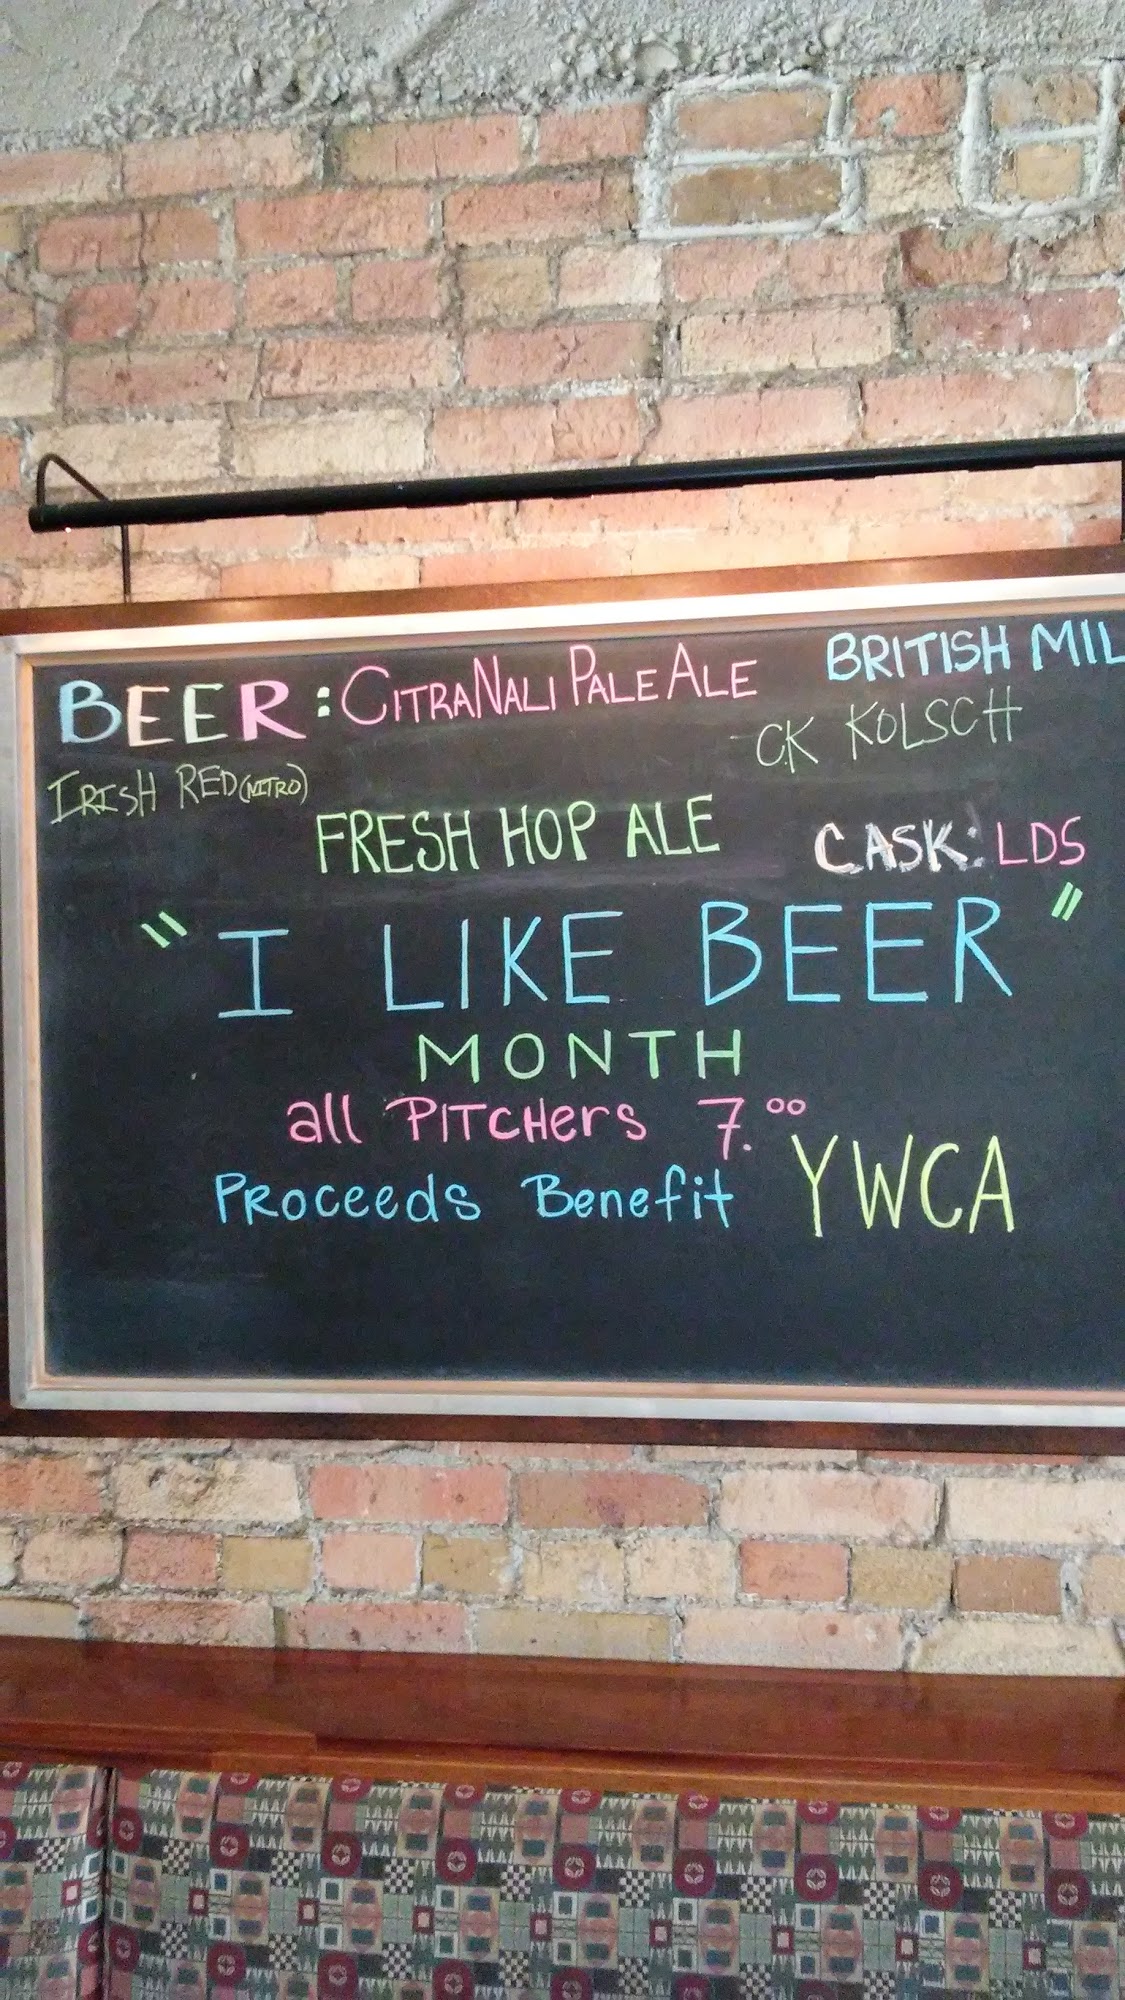 BEER: CITRANALI PALE ALE BRITISH MIL
IRISH RED (NITRO) CK KOLSCH
FRESH HOP ALE CASK: LDS
"I LIKE BEER"
MONTH
all PITCHERS 7.00
PROCEEDS BENEFIT YWCA